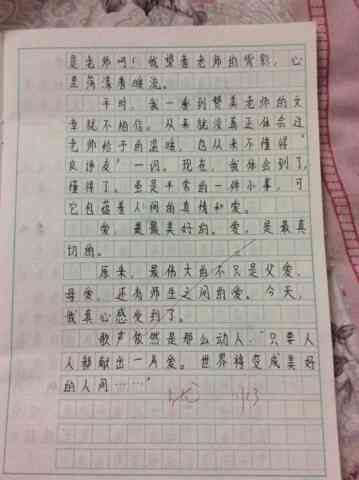 是老师吗！我望着老师的背影，心
里荡漾着暖流。
平时，我一看到赞美老师的文
章就不相信。从来就没真正体会过
老师给予的温暖，也从来不懂得“
良师友”一词。现在，我体会到了，
懂得了。虽是平常的一件小事，可
它包蕴着人间的真情和爱。
爱，是最美好的。爱，是最真
切的。
原来，最伟大的不只是父爱、
母爱，还有师生之间的爱。今天，
我真心感受到了。
歌声依然是那么动人：“只要人
人都献出一片爱。世界将变成美好
的人间……”